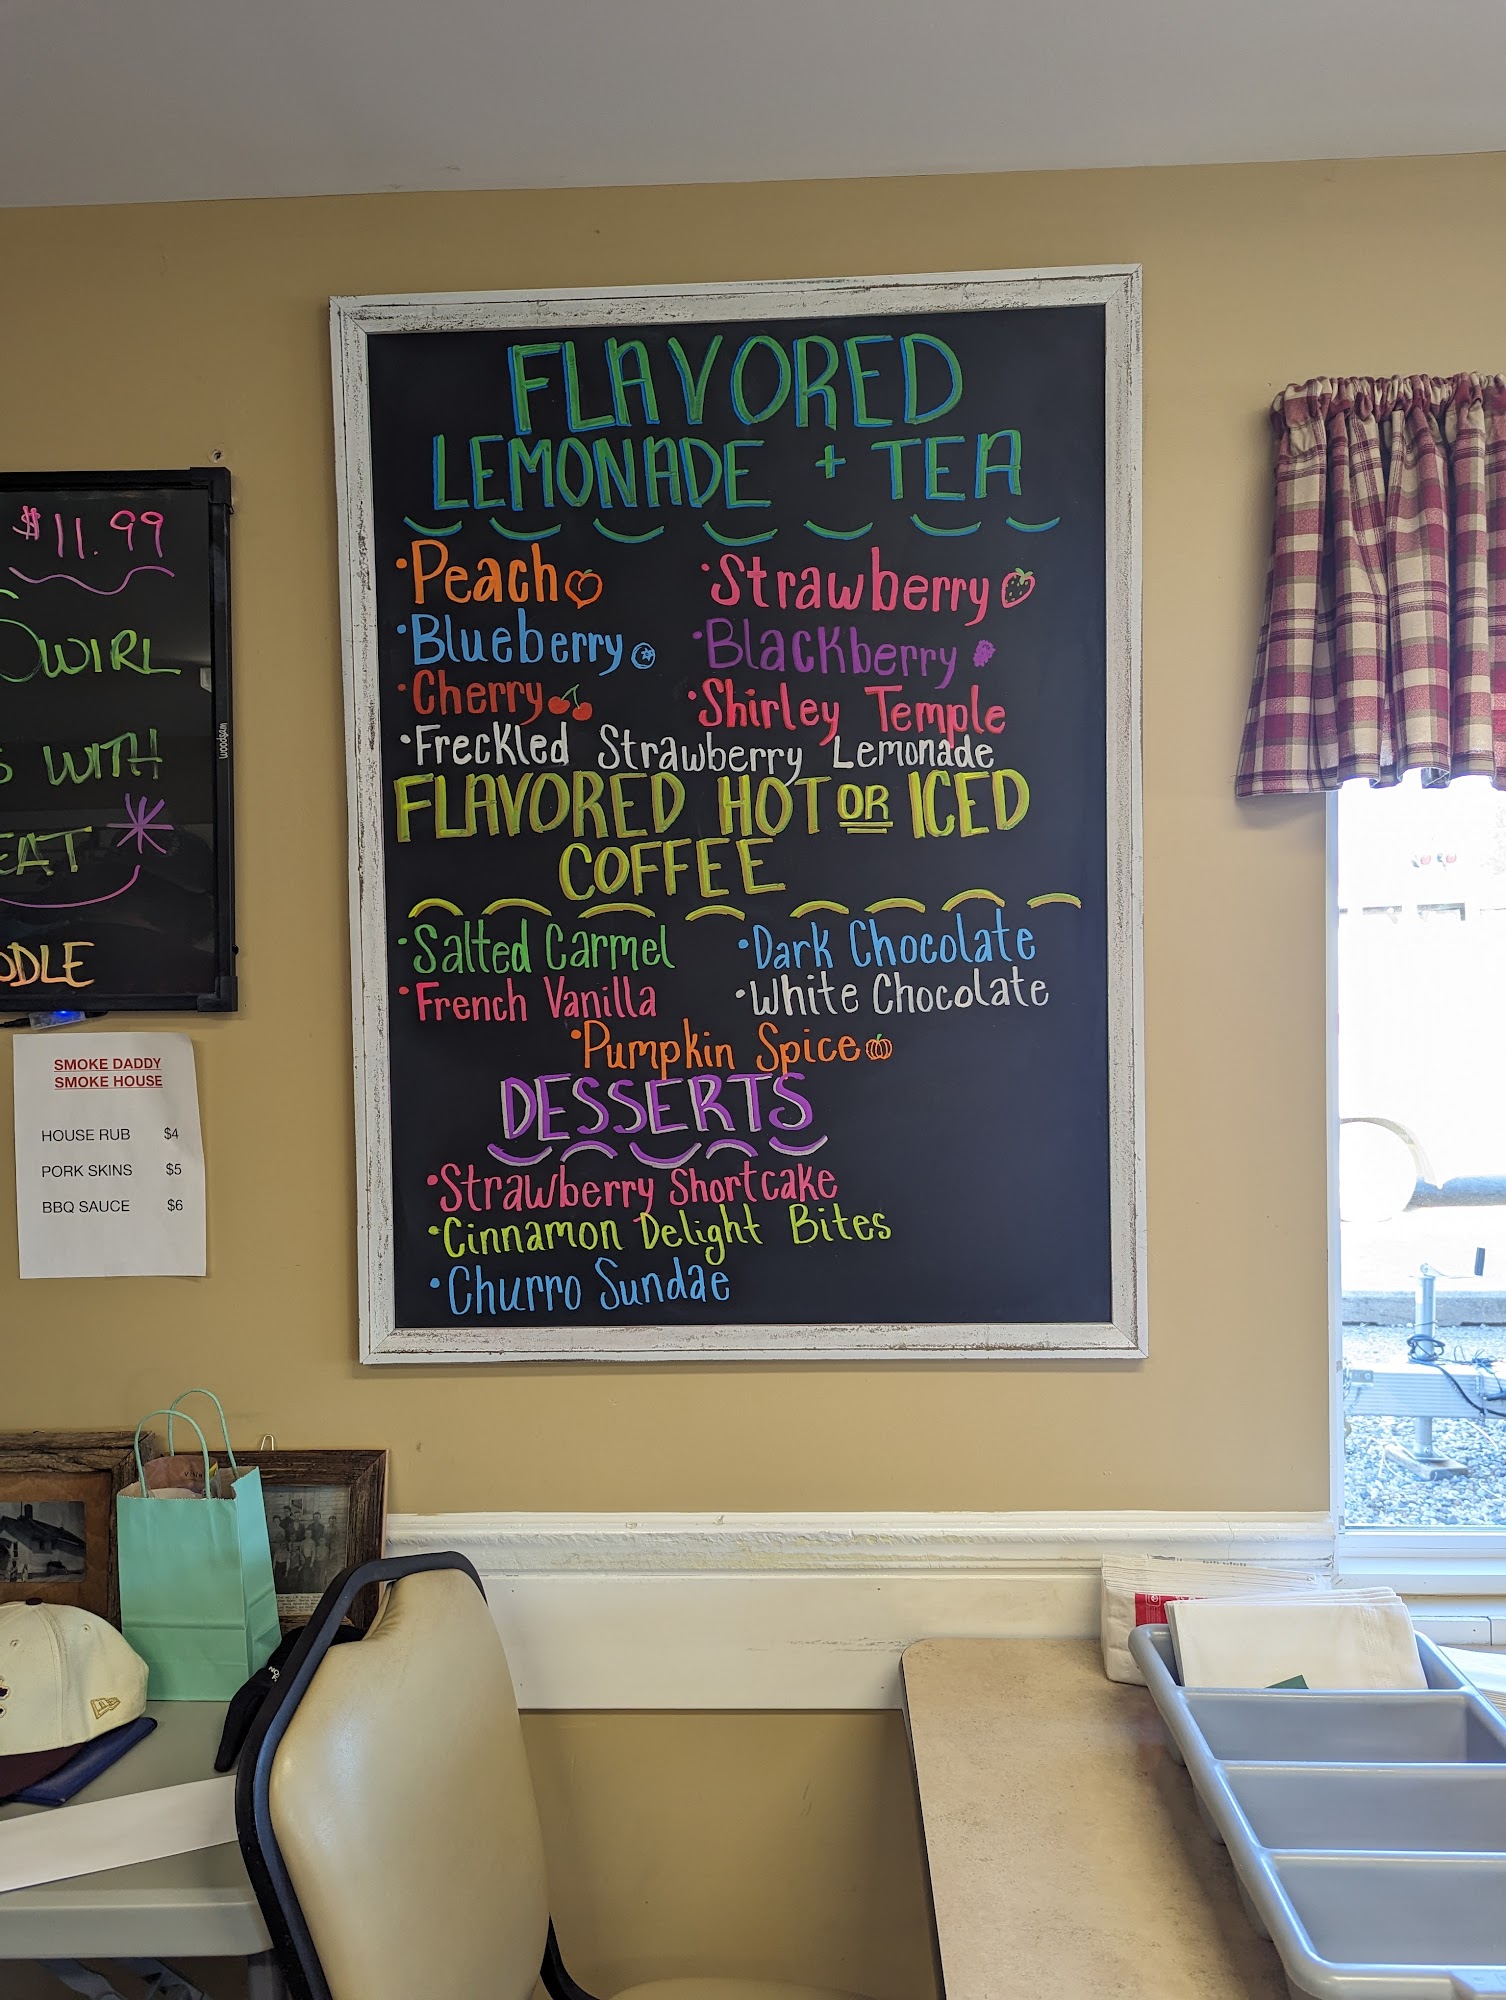 FLAVORED
LEMONADE + TEA
•Peach •Strawberry
•Blueberry •Blackberry
•Cherry •Shirley Temple
•Freckled Strawberry Lemonade
FLAVORED HOT OR ICED
COFFEE
•Salted Carmel •Dark Chocolate
•French Vanilla •White Chocolate
•Pumpkin Spice
DESSERTS
•Strawberry Shortcake
•Cinnamon Delight Bites
•Churro Sundae
$11.99
SWIRL
S WITH
EAT
ODLE
woodsam
SMOKE DADDY
SMOKE HOUSE
HOUSE RUB $4
PORK SKINS $5
BBQ SAUCE $6